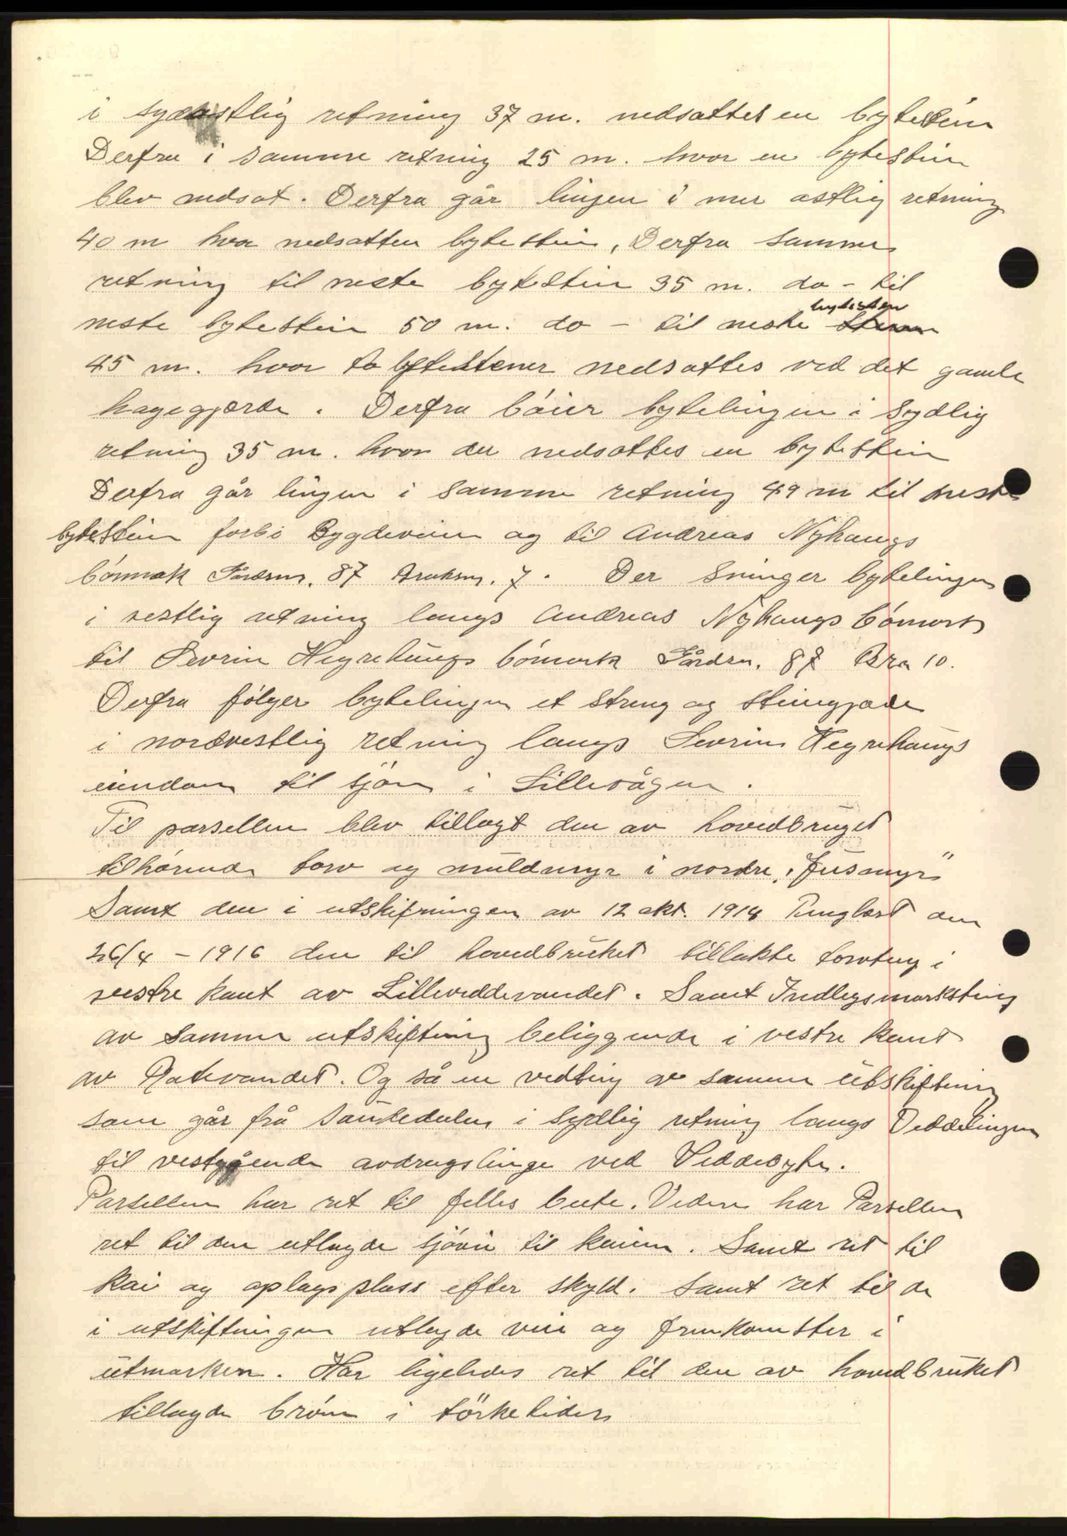 i sydøstlig retning 37 m. nedsattes en bytestein
Derfra i samme retning 25 m. hvor en bytestein
blev nedsat. Derfra går linjen i mer østlig retning
40 m hvor nedsatten bytestein, Derfra samme
retning til neste bytestein 35 m. do - til
neste bytestein 50 m. do - til neste bytesten
45 m. hvor to bytestener nedsattes ved det gamle
hagegjærde. Derfra bøier bytelinjen i sydlig
retning 35 m. hvor der nedsattes en bytestein
Derfra går linjen i samme retning 49 m til neste
bytestein forbi Bygdeveien og til Andreas Nyhaugs
bømark Gårdsnr. 87 Bruksnr. 7. Der svinger bytelinjen
i vestlig retning langs Andreas Nyhaugs bømark
til Sevrin Hegrehaugs bømark Gårdsn. 87 Brn 10.
Derfra følger bytelinjen et streng og steingjærde
i nordvestlig retning langs Sevrins Hegrehaugs
eiendom til sjøen i Lillevågen.
Til parsellen blev tillagt den av hovedbruget
tilhørende torv og muldmyr i nordre "Jusmyr"
Samt den i utskiftningen av 12 okt. 1914 Tinglæst den
26/4 - 1916 den til hovedbruket tillakte torvteig i
vestre kant av Lilleveddevandet. Samt Indlegsmarksteig
av samme utskiftning beliggende i vestre kant
av Ratevandet. Og så en vedteig av samme utskiftning
som går fra Sautedalen i sydlig retning langs Veddelinjen
til vestgående avdragslinje ved Veddebyte.
Parsellen har ret til felles beite. Videre har Parsellen
ret til den utlagde sjøvei til kaien. Samt ret til
kai og oplagsplass efter skyld. Samt ret til de
i utskiftningen utlagde veie og fremkomster i
utmarken. Har ligeledes ret til den av hovedbruket
tillagde brønn i tørketider